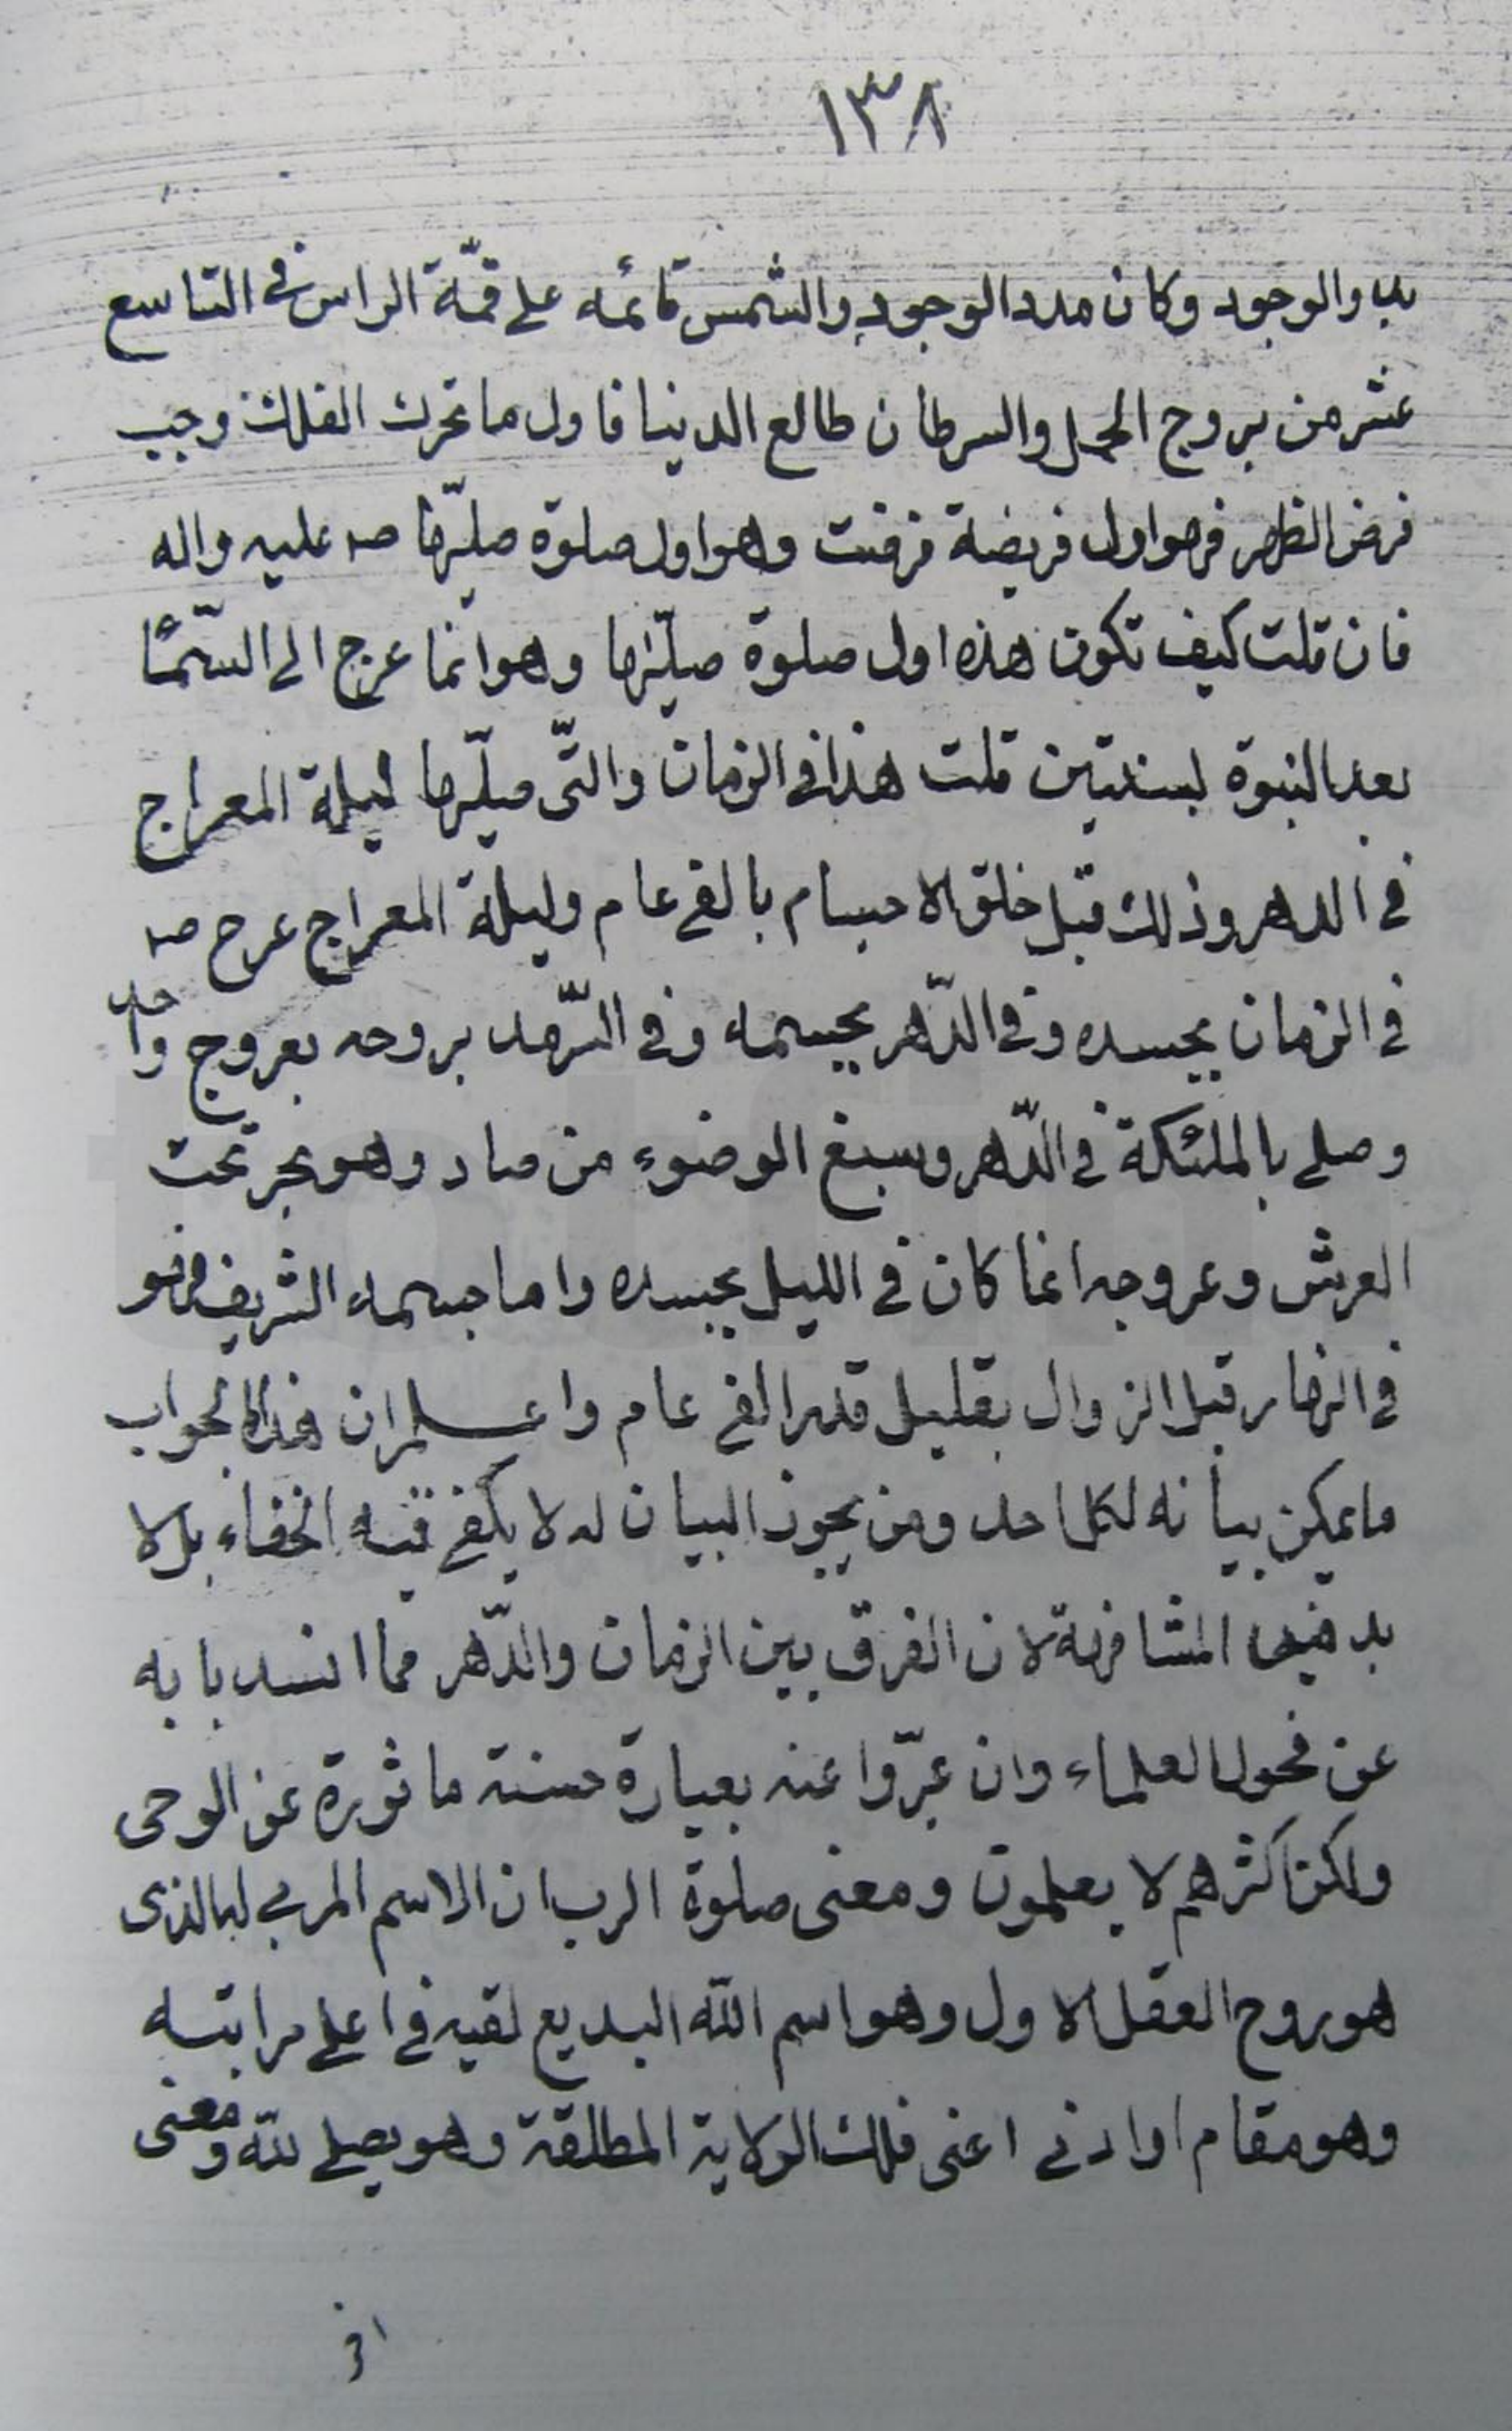 ١٣٨
بدو الوجود وكان مدد الوجود والشمس قائمه على قمّة الراس فى التاسع
عشر من بروج الحمل والسرطان طالع الدنيا فاول ما تحرك الفلك وجب
فرض الظهر فهو اول فريضة فرضت وهو اول صلوة صلّيها صه عليه واله
فان قلت كيف تكون هذه اول صلوة صلّيها وهو انما عرج الى السّماء
بعد النبوة بسنتين قلت هذا فى الزمان والتّى صلّيها ليلة المعراج
فى الدهر وذلك قبل خلق الاجسام بالفى عام وليلة المعراج عرج صه
فى الزمان بجسده وفى الدّهر بجسمه وفى السّرمد بروحه بعروج واحد
وصلى بالملئكة فى الدّهر وسبغ الوضوء من صاد وهو بحر تحت
العرش وعروجه انما كان فى الليل بجسده واما جسمه الشريف فهو
فى النهار قبل الزوال بقليل قدر الفى عام واعلم ان هذا الجواب
ما يمكن بيانه لكل احد ومن يجوز البيان له لا يكفى فيه الخفاء بل لا
بد فيها المشافهة لان الفرق بين الزمان والدّهر مما انسد بابه
عن فحول العلماء وان عبّروا عنه بعبارة حسنة ماثورة عن الوحى
ولكن اكثرهم لا يعلمون ومعنى صلوة الرب ان الاسم المربى له الذى
هو روح العقل الاول وهو اسم الله البديع لقيه فى اعلى مراتبه
وهو مقام او ادنى اعنى فلك الولاية المطلقة وهو يصلى لله ومعنى